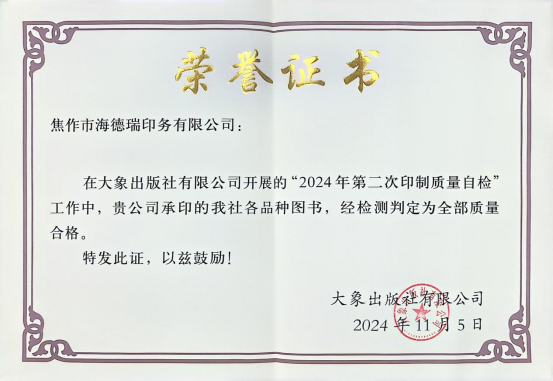 荣誉证书
焦作市海德瑞印务有限公司：
在大象出版社有限公司开展的“2024年第二次印制质量自检”
工作中，贵公司承印的我社各品种图书，经检测判定为全部质量
合格。
特发此证，以兹鼓励！
大象出版社有限公司
2024年11月5日